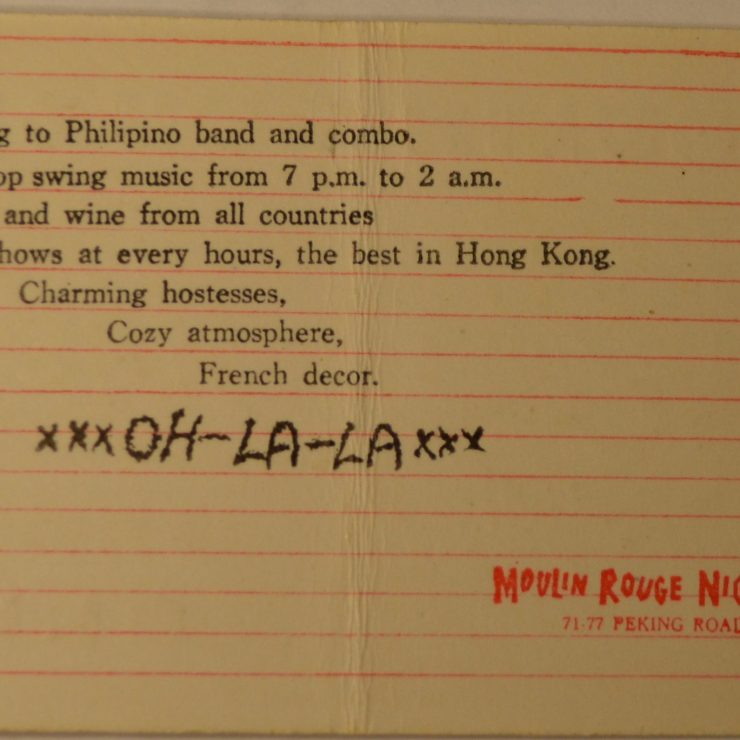 to Philipino band and combo.
swing music from 7 p.m. to 2 a.m.
and wine from all countries
hows at every hours, the best in Hong Kong.
Charming hostesses,
Cozy atmosphere,
French decor.
xxx OH-LA-LA xxx
MOULIN ROUGE
71-77 PEKING ROAD